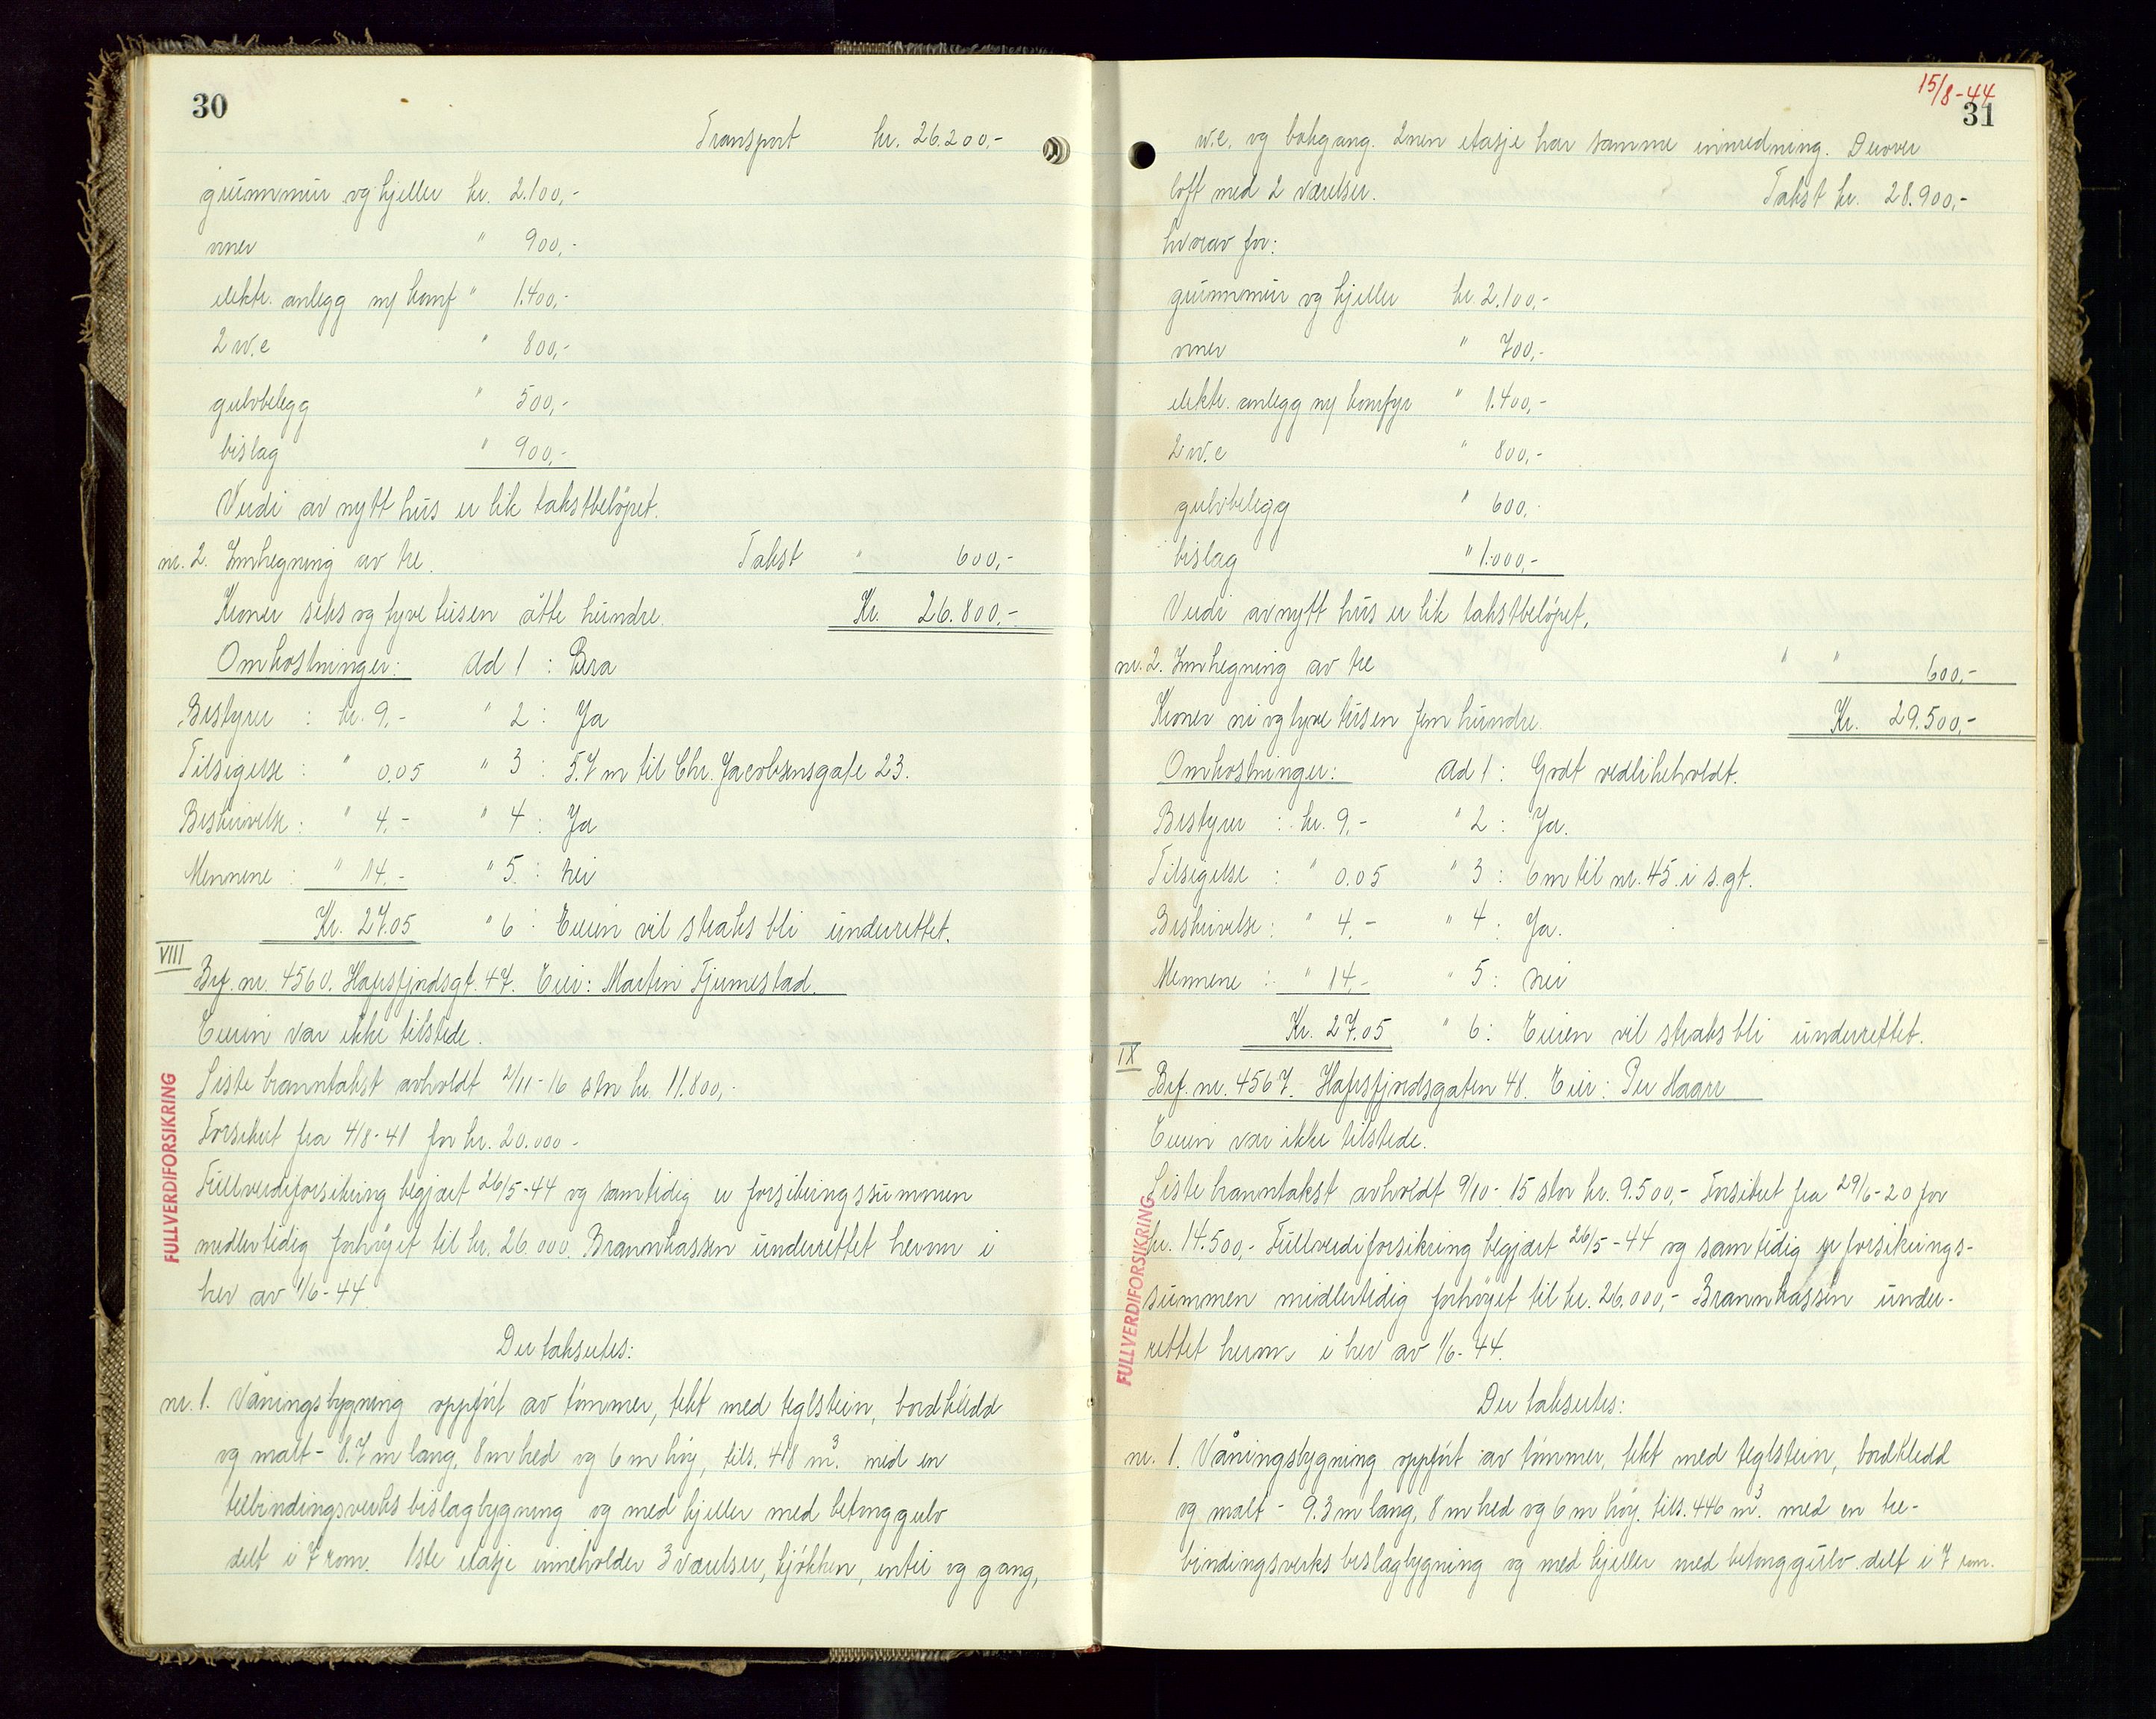 30
Transport kr. 26.200,-
grunnmur og kjeller kr. 2.100,-
ovner " 900,-
elektr. anlegg m/ komf " 1.400,-
2 w.c " 800,-
gulvbelegg " 500,-
bislag " 900,-
Verdi av nytt hus er lik takstbeløpet.
nr. 2. Innhegning av tre. Takst " 600,-
Kroner seks og tyve tusen åtte hundre. Kr. 26.800,-
Omkostninger: Ad 1 : Bra
Bestyrer : kr. 9,- " 2 : Ja
Tilsigelse : " 0.05 " 3 : 5.7 m til Chr. Jacobsensgate 23.
Beskrivelse : " 4,- " 4 : Ja
Mennene : " 14,- " 5 : Nei
Kr. 27.05 " 6 : Eieren vil straks bli underrettet.
VIII
Brf. nr. 4560. Hafrsfjordsgt. 47. Eier: Martin Tjemestad.
Eieren var ikke tilstede.
Siste branntakst avholdt 2/11-16 stor kr. 11.800,-
Forsikret fra 4/8-41 for kr. 20.000-
Fullverdiforsikring begjært 26/5-44 og samtidig er forsikringssummen
midlertidig forhøyet til kr. 26.000. Brannkassen underrettet herom i
brev av 1/6-44.
FULLVERDIFORSIKRING
Der takseres:
nr. 1. Våningsbygning oppført av tømmer, tekt med teglstein, bordkledd
og malt - 8.7 m lang, 8 m bred og 6 m høy, tils. 418 m³. med en
trebindingsverks bislagbygning og med kjeller med betonggulv
delt i 7 rom. 1ste etasje inneholder 3 værelser, kjøkken, entré og gang,
15/8-44
31
w.c. og bakgang. 2nen etasje har samme innredning. Derover
loft med 2 værelser. Takst kr. 28.900,-
hvorav for:
grunnmur og kjeller kr. 2.100,-
ovner " 700,-
elektr. anlegg m/ komfyr " 1.400,-
2 w.c " 800,-
gulvbelegg " 600,-
bislag " 1.000,-
Verdi av nytt hus er lik takstbeløpet.
nr. 2. Innhegning av tre " " 600,-
Kroner ni og tyve tusen fem hundre. Kr. 29.500,-
Omkostninger: Ad 1 : Godt vedlikeholdt.
Bestyrer : kr. 9,- " 2 : Ja.
Tilsigelse : " 0.05 " 3 : 6 m til nr. 45 i s. gt.
Beskrivelse : " 4,- " 4 : Ja.
Mennene : " 14,- " 5 : Nei
Kr. 27.05 " 6 : Eieren vil straks bli underrettet.
IX
Brf. nr. 4567. Hafrsfjordsgaten 48. Eier: Per Haarr
Eieren var ikke tilstede.
Siste branntakst avholdt 9/10-15 stor kr. 9.500,- Forsikret fra 29/6-20 for
kr. 14.500,- Fullverdiforsikring begjært 26/5-44 og samtidig er forsikrings-
summen midlertidig forhøyet til kr. 26.000,- Brannkassen under-
rettet herom i brev av 1/6-44.
FULLVERDIFORSIKRING
Der takseres:
nr. 1. Våningsbygning oppført av tømmer, tekt med teglstein, bordkledd
og malt - 9.3 m lang, 8 m bred og 6 m høy. tils. 446 m³. med en tre-
bindingsverks bislagbygning og med kjeller med betonggulv delt i 7 rom.